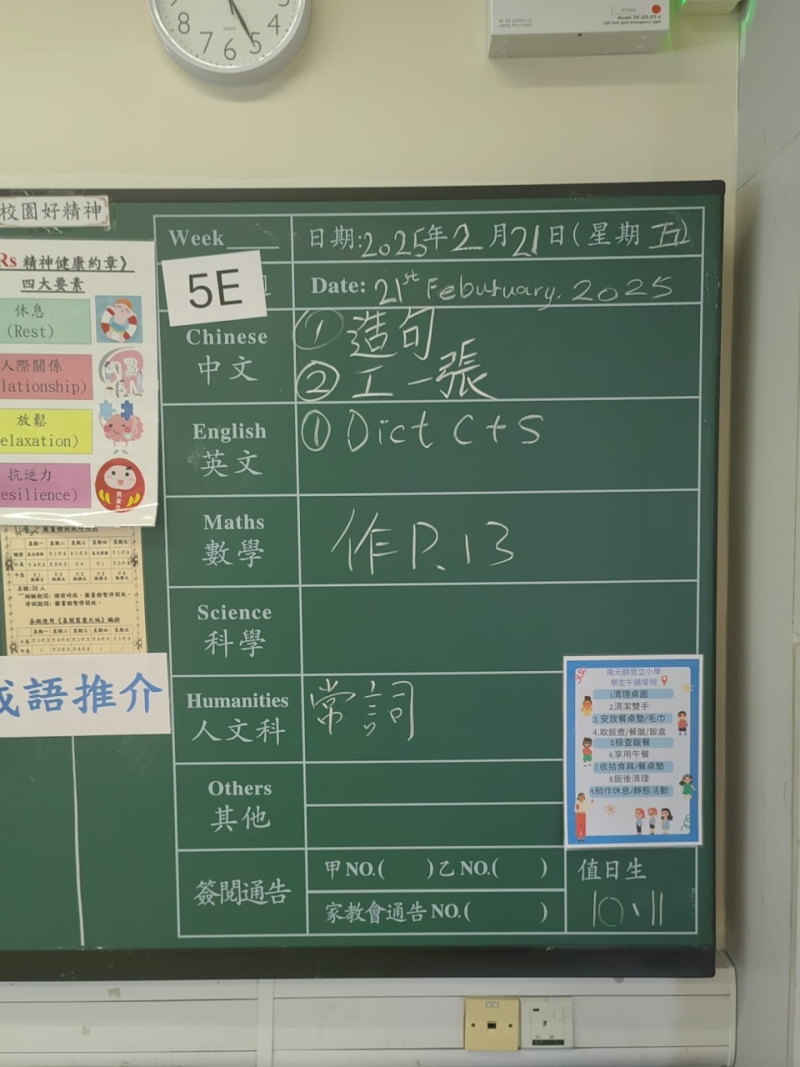 8 7 6 5 4
校園好精神
Rs 精神健康約章》
四大要素
休息
(Rest)
人際關係
lationship)
放鬆
elaxation)
抗逆力
esilience)
成語推介
Week
日期:2025年2月21日(星期五)
5E
Date: 21st Feburuary. 2025
Chinese
中文
① 造句
② 工一張
English
英文
① Dict C+S
Maths
數學
作P.13
Science
科學
Humanities
人文科
常詞
Others
其他
簽閱通告
甲NO.( )乙NO.( )
家教會通告NO.( )
值日生
10、11
南元朗官立小學
學生午膳常規
1.清理桌面
2.清潔雙手
3.安放餐桌墊/毛巾
4.取飯壺/餐盤/飯盒
5.檢查飯餐
6.享用午餐
7.收拾食具/餐桌墊
8.飯後清理
9.稍作休息/靜態活動